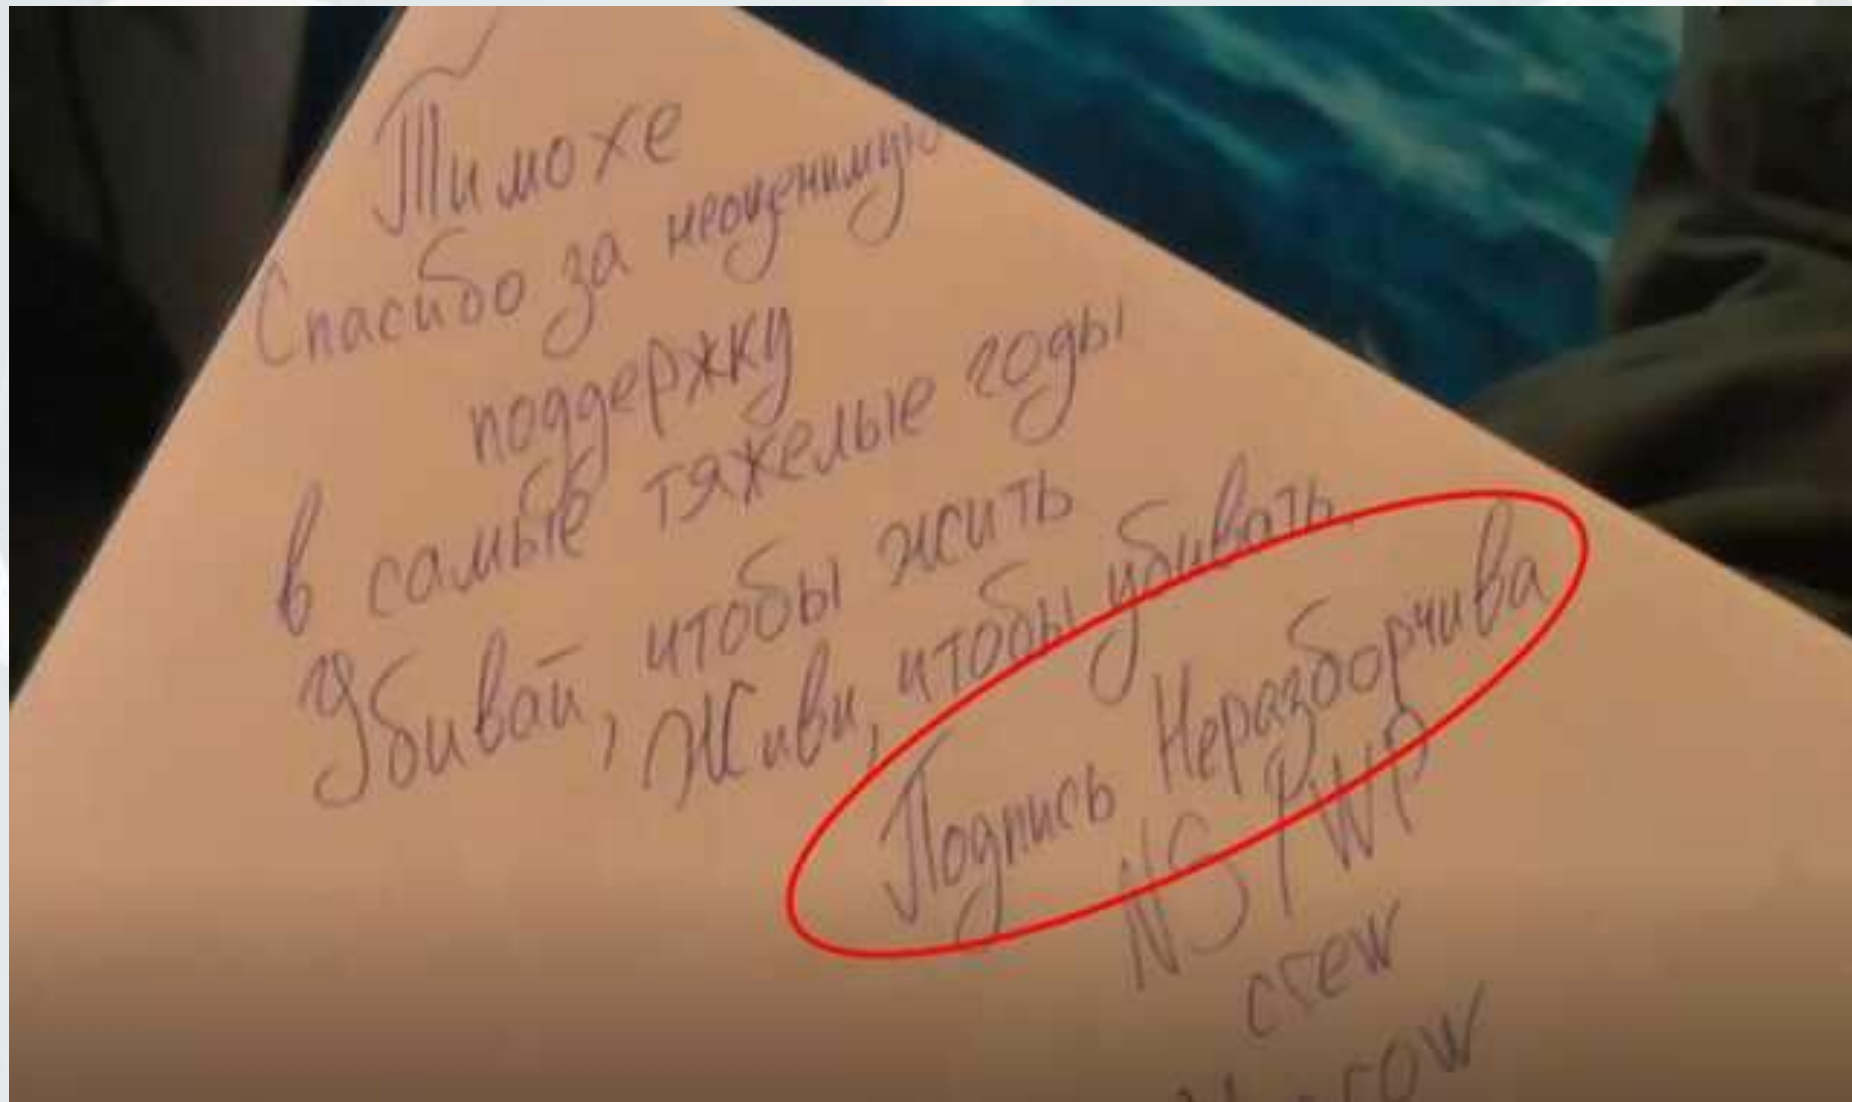 Тимохе
Спасибо за неоценимую
поддержку
в самые тяжелые годы
Убивай, чтобы жить
Живи, чтобы убивать.
Подпись Неразборчива
NS/WP
crew